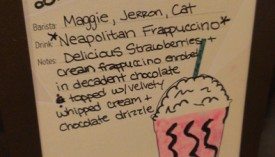 Barista: Maggie, Jerron, Cat
Drink: *Neapolitan Frappuccino*
Notes: Delicious Strawberries +
cream frappuccino enrobed
in decadent chocolate
& topped w/ velvety
whipped cream +
chocolate drizzle